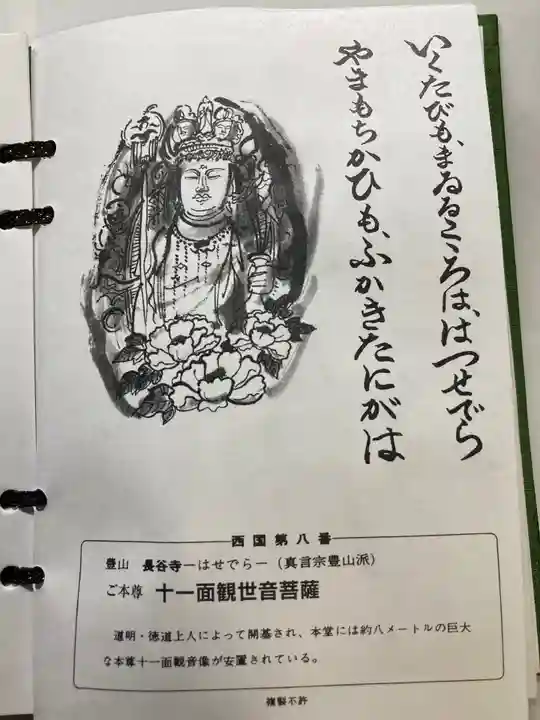 いくたびも、まゐるこゝろは、はつせでら
やまもちかひも、ふかきたにがは
西国第八番
豊山 長谷寺－はせでら－（真言宗豊山派）
ご本尊 十一面観世音菩薩
道明・徳道上人によって開基され、本堂には約八メートルの巨大
な本尊十一面観音像が安置されている。
複製不許